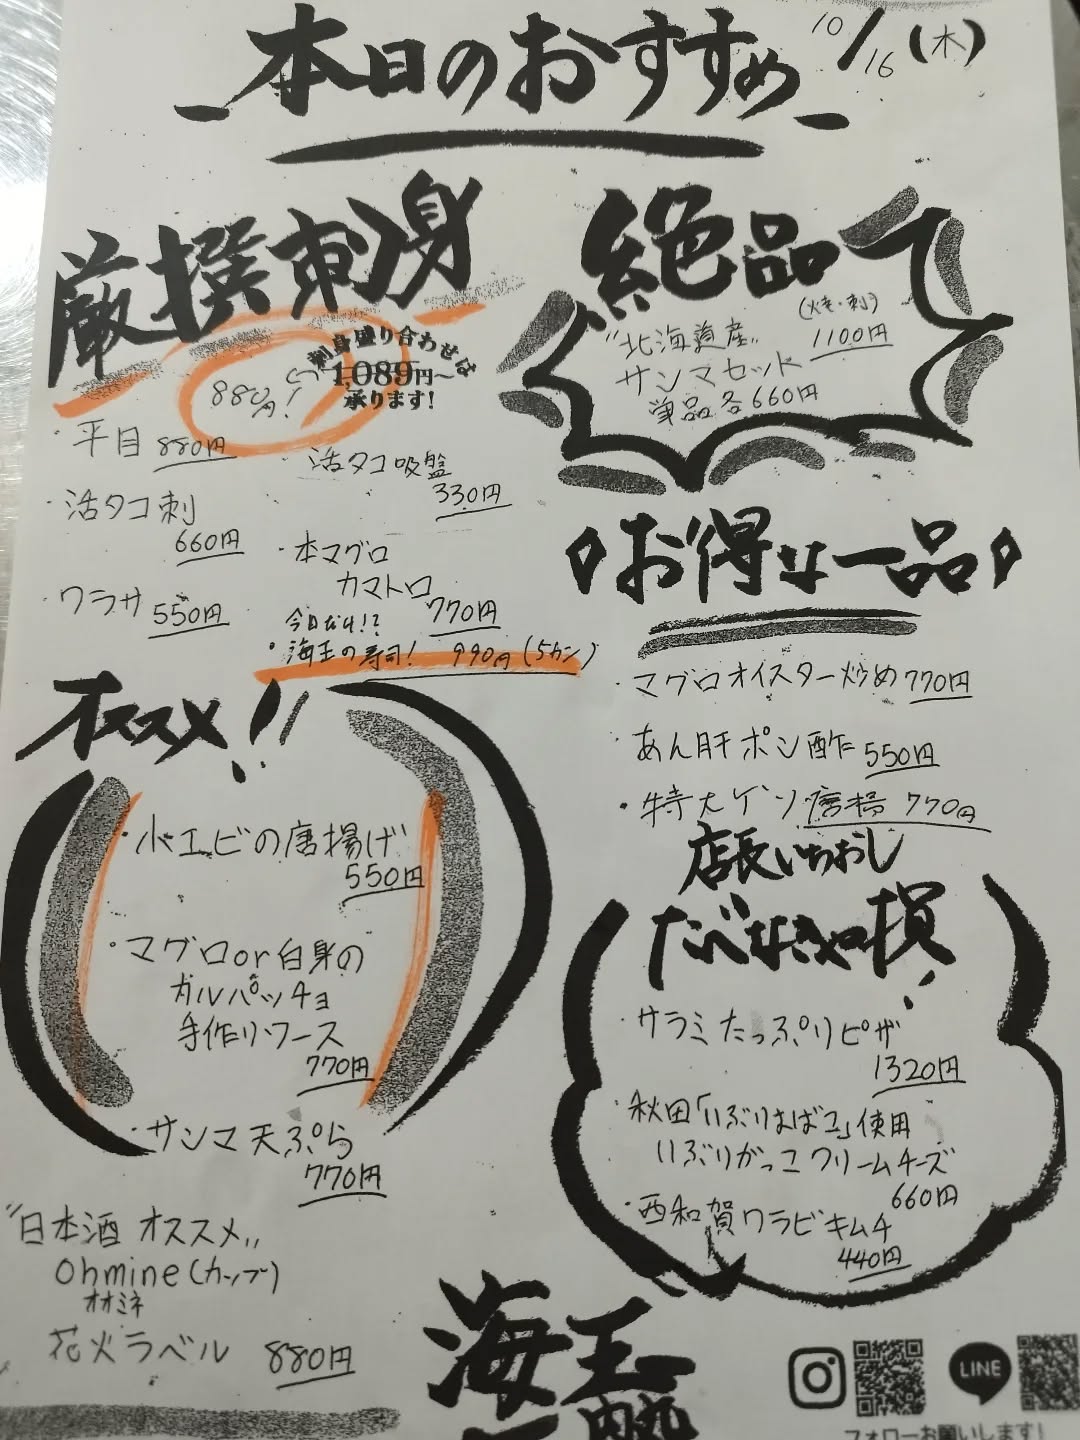 本日のおすすめ
10/16(木)
厳撰刺身
刺身盛り合わせは
1,089円〜
承ります!
880円!
・平目 880円
・活タコ吸盤
330円
・活タコ刺
660円
・本マグロ
カマトロ
770円
・ワラサ 550円
今日だけ!?
・海王の寿司! 990円(5カン)
絶品
(焼・刺)
"北海道産"
1100円
サンマセット
単品各660円
お得な一品
・マグロオイスター炒め 770円
・あん肝ポン酢 550円
・特大ゲソ唐揚 770円
オススメ!!
・小エビの唐揚げ
550円
・マグロor白身の
カルパッチョ
手作りソース
770円
・サンマ天ぷら
770円
店長いちおし
たべなきゃ損!
・サラミたっぷりピザ
1320円
・秋田「いぶりまばコ」使用
いぶりがっこクリームチーズ
660円
・西和賀ワラビキムチ
440円
"日本酒 オススメ"
Ohmine(カップ)
オオミネ
花火ラベル 880円
海王
LINE
フォローお願いします!